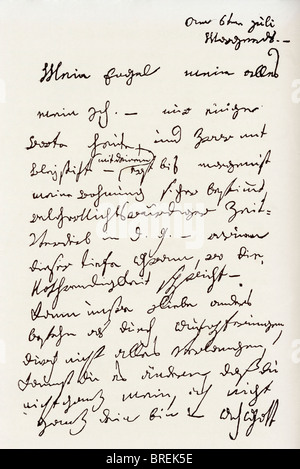 am 6ten Juli
Morgends. –
Mein Engel mein alles
mein Ich. – nur einige
Worte heute, und zwar mit
Bleystift – mit deinem erst bis morgen ist
meine Wohnung sicher bestimt,
welcher Nichtswürdiger Zeit-
Verderb in d. g. – warum
dieser tiefe Gram, wo die
Nothwendigkeit spricht. –
Kann unsre Liebe anders
bestehn als durch Aufopferungen,
durch nicht alles verlangen,
kannst du es ändern, daß du
nicht ganz mein, ich nicht
ganz dein bin – Ach Gott
BREK5E